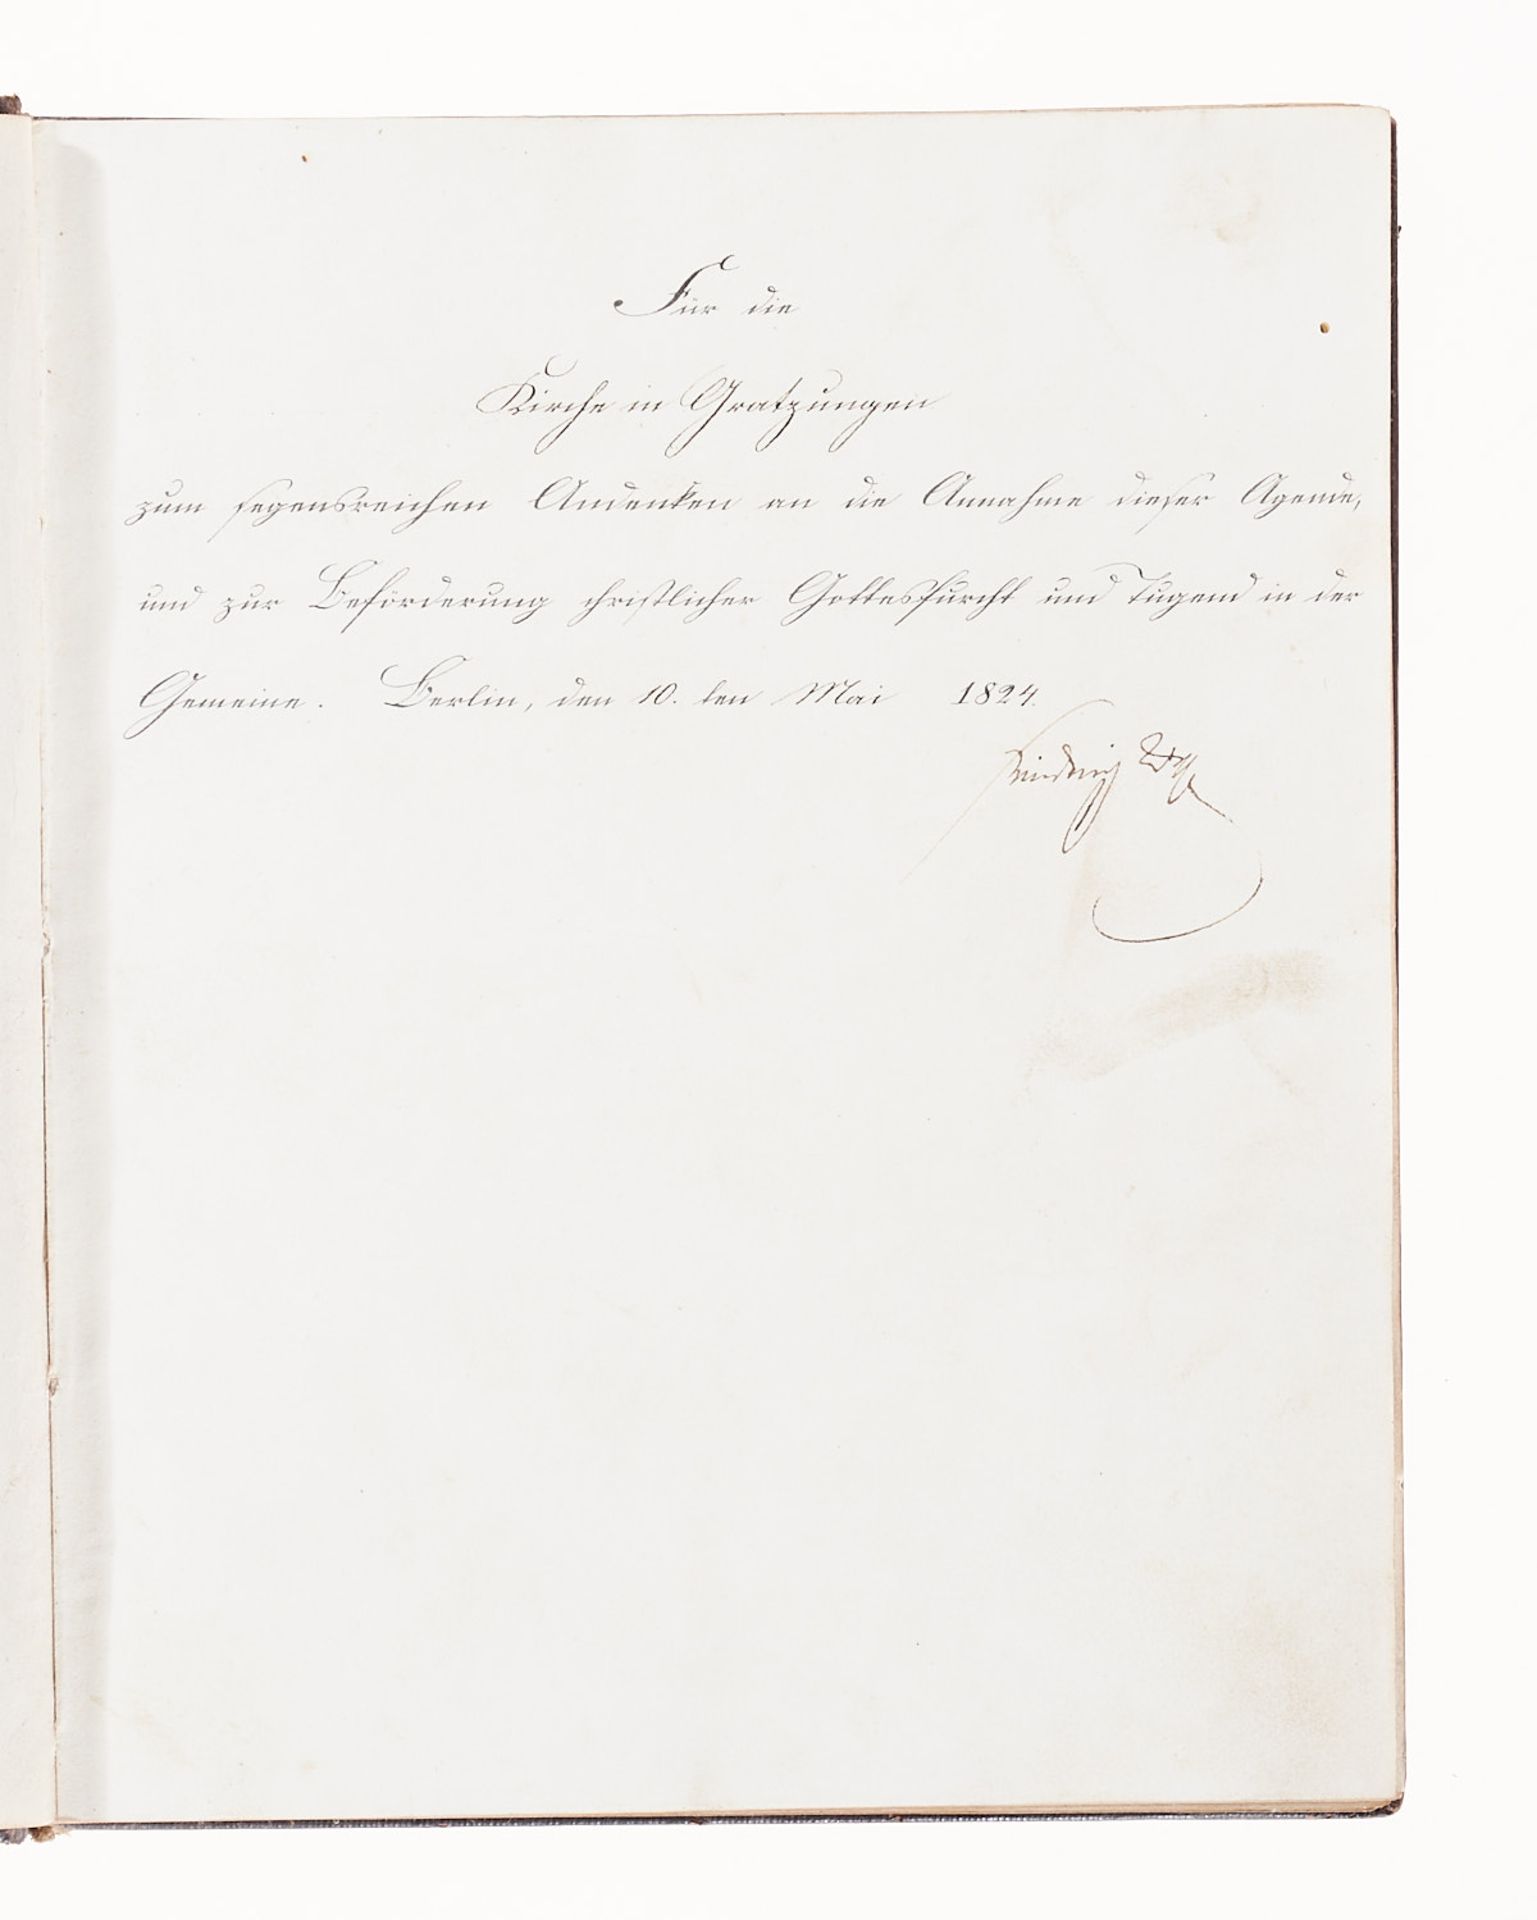 Für die
Kirche in Gratzungen
zum segensreichen Andenken an die Annahme dieser Agende,
und zur Beförderung christlicher Gottesfurcht und Tugend in der
Gemeine. Berlin, den 10. ten Mai 1824.
Friedrich Wilh